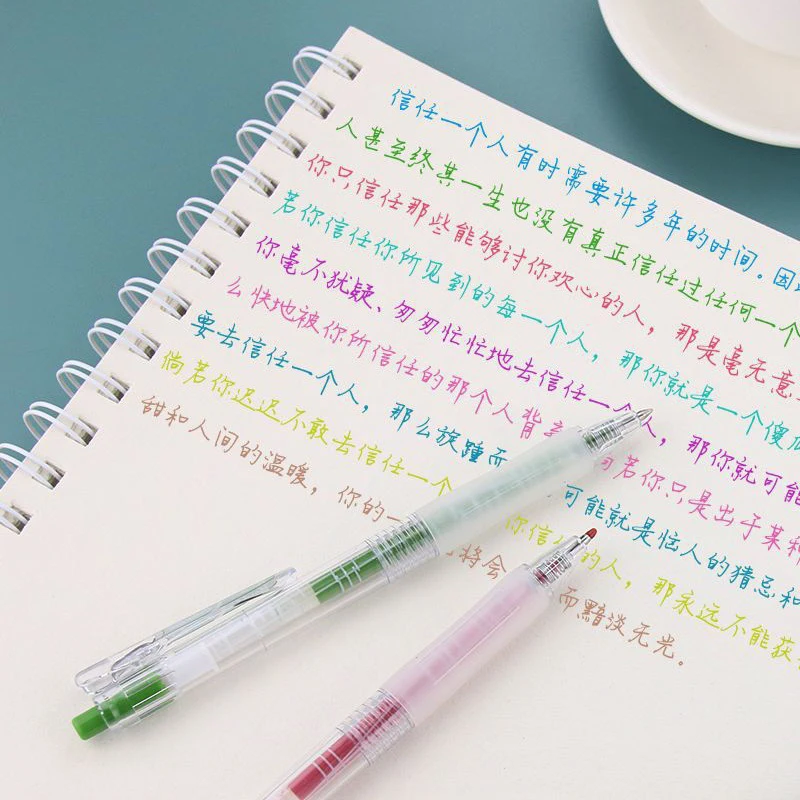 信任一个人有时需要许多年的时间。因
人甚至终其一生也没有真正信任过任何一个
你只信任那些能够讨你欢心的人，那是毫无意
若你信任你所见到的每一个人，那你就是一个傻
你毫不犹疑、匆匆忙忙地去信任一个人，那你就可能
么快地被你所信任的那个人背 若你只是出于某
要去信任一个人，那么旋踵而 可能就是恼人的猜忌和
倘若你迟迟不敢去信任一个 你信 的人，那永远不能获
甜和人间的温暖，你的一 将会 而黯淡无光。